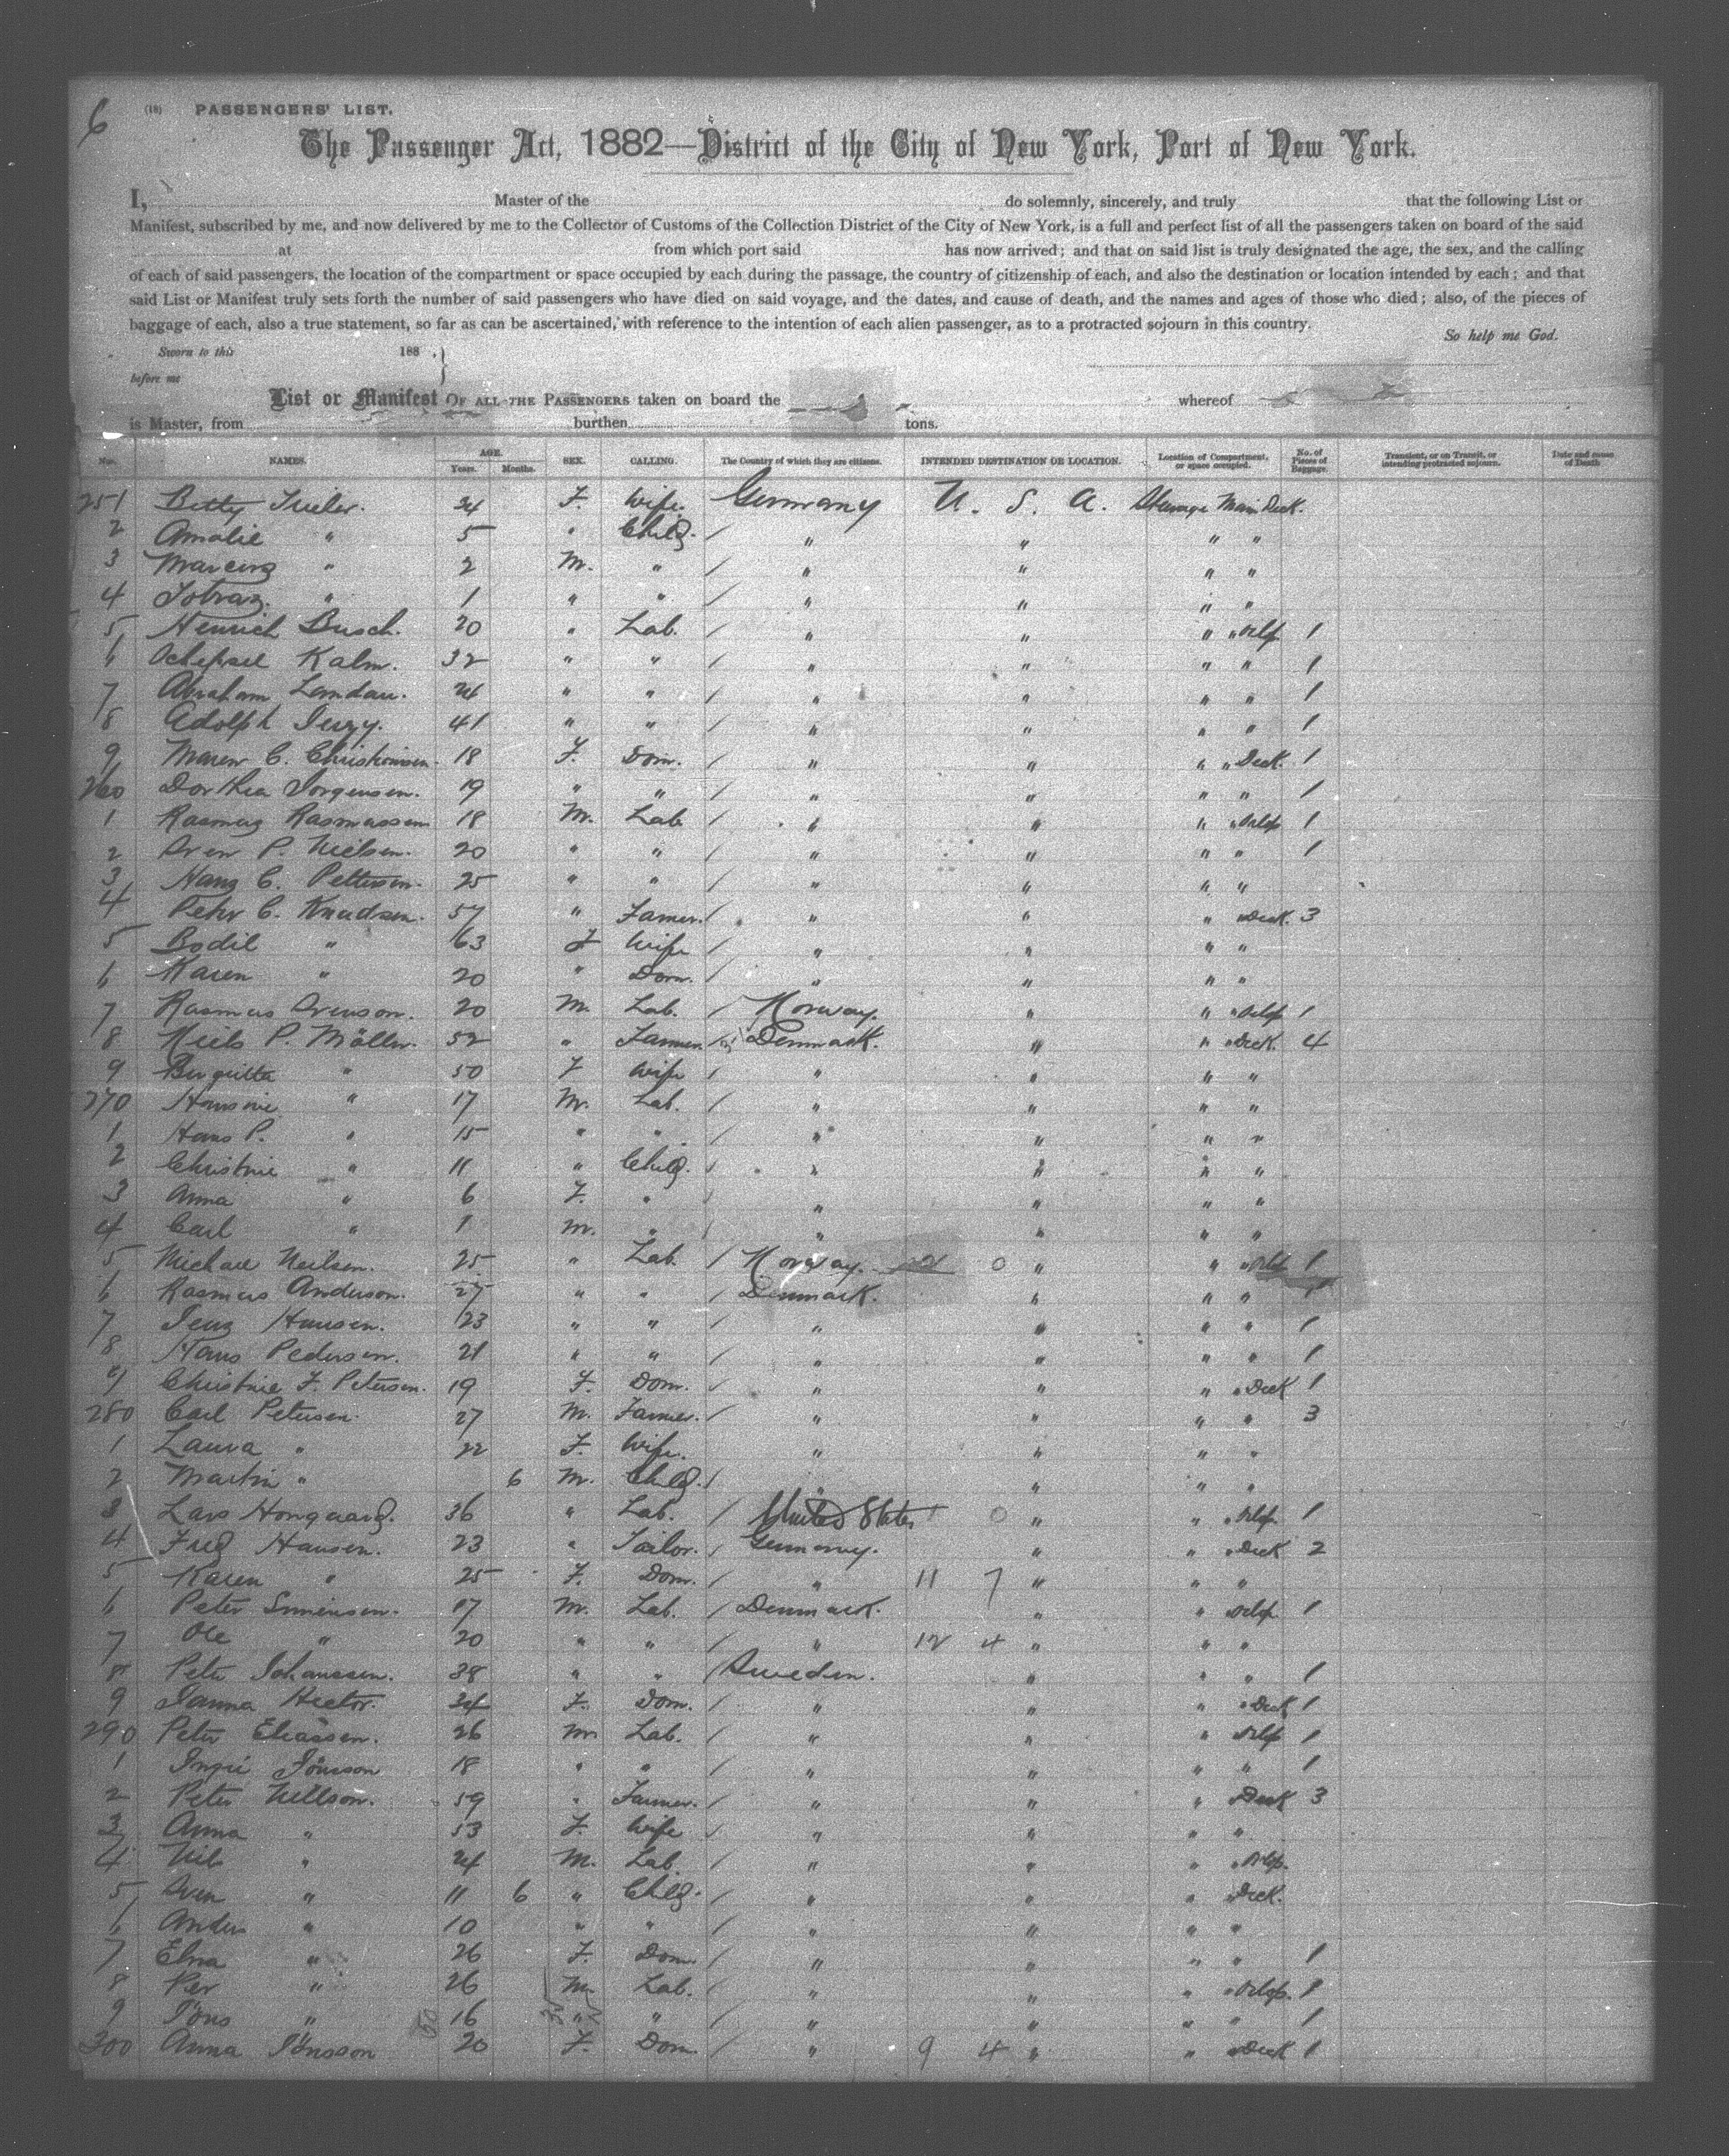 6 (18) PASSENGERS' LIST.
The Passenger Act, 1882—District of the City of New York, Port of New York.
I, Master of the do solemnly, sincerely, and truly that the following List or
Manifest, subscribed by me, and now delivered by me to the Collector of Customs of the Collection District of the City of New York, is a full and perfect list of all the passengers taken on board of the said
at from which port said has now arrived; and that on said list is truly designated the age, the sex, and the calling
of each of said passengers, the location of the compartment or space occupied by each during the passage, the country of citizenship of each, and also the destination or location intended by each; and that
said List or Manifest truly sets forth the number of said passengers who have died on said voyage, and the dates, and cause of death, and the names and ages of those who died; also, of the pieces of
baggage of each, also a true statement, so far as can be ascertained, with reference to the intention of each alien passenger, as to a protracted sojourn in this country.
So help me God.
Sworn to this 188 .
before me
List or Manifest OF ALL THE PASSENGERS taken on board the whereof
is Master, from burthen tons.
Nos. NAMES. AGE. Years. Months. SEX. CALLING. The Country of which they are citizens. INTENDED DESTINATION OR LOCATION. Location of Compartment, or space occupied. No. of Pieces of Baggage. Transient, or on Transit, or intending protracted sojourn. Date and cause of Death
251 Betty 34 F. Wife. Germany U. S. A. Steerage Main Deck.
2 Amalie " 5 " Child. / " " " "
3 " 2 M. " / " " " "
4 " 1 " " / " " " "
5 Heinrich Busch. 20 " Lab. / " " " " Orlop 1
6 Kalm. 32 " " / " " " " 1
7 Abraham Landau. 24 " " / " " " " 1
8 Adolph 41 " " / " " " " 1
9 Maren C. Christiansen. 18 F. Dom. / " " " " Deck. 1
260 Dorthea Jorgensen. 19 " " / " " " " 1
1 Rasmus Rasmussen 18 M. Lab / " " " " Orlop 1
2 Sven P. Nielsen. 20 " " / " " " " 1
3 Hans C. Pettersen. 25 " " / " " " "
4 Peter C. Knudsen. 57 " Farmer. / " " " " Deck. 3
5 Bodil " 63 F Wife / " " " "
6 Karen " 20 " Dom. / " " " "
7 Rasmus Svenson. 20 M. Lab. / Norway. " " " Orlop 1
8 Niels P. Möller. 52 " Farmer. / Denmark. " " " Deck. 4
9 Birgitta " 50 F Wife / " " " "
270 Hansine " 17 M. Lab. / " " " "
1 Hans P. " 15 " " / " " " "
2 Christine " 11 " Child. / " " " "
3 Anna " 6 F. " / " " " "
4 Carl " 1 M. " / " " " "
5 Michael Neilsen. 25 " Lab / Norway. 0 " " " Orlop 1
6 Rasmus Anderson. 27 " " / Denmark. " " "
7 Jens Hansen. 23 " " / " " " " 1
8 Hans Pedersen. 21 " " / " " " " 1
9 Christine F. Petersen. 19 F. Dom. / " " " " Deck 1
280 Carl Petersen. 27 M. Farmer. / " " " " 3
1 Laura " 22 F. Wife. " " " "
2 Martin " 6 M. Child. / " " " "
3 Lars Hongaard. 36 " Lab. / United States 0 " " " Orlop 1
4 Fred Hansen. 23 " Tailor. / Germany. " " " Deck 2
5 Karen " 25 F. Dom. / " 11 7 " " "
6 Peter 17 M. Lab. / Denmark. " " " Orlop 1
7 Ole " 20 " " / " 12 4 " " "
8 Peter Johanssen. 38 " " / Sweden. " " " 1
9 Hanna Hector. 34 F. Dom. / " " " " Deck 1
290 Peter Eliassen. 26 M Lab. / " " " Orlop 1
1 Jönsson 18 " " / " " " " 1
2 Peter Nillson. 59 " Farmer. / " " " " Deck 3
3 Anna " 53 F. Wife / " " " "
4 Nils " 24 M. Lab. / " " " " Orlop.
5 Sven " 11 6 " Child. / " " " " Deck.
6 Anders " 10 " " / " " " "
7 Elna " 26 F. Dom. / " " " " 1
8 Per " 26 M. Lab. / " " " " Orlop. 1
9 Töns " 16 " " / " " " " 1
300 Anna Jönsson 20 F. Dom / " 9 4 " " " Deck 1